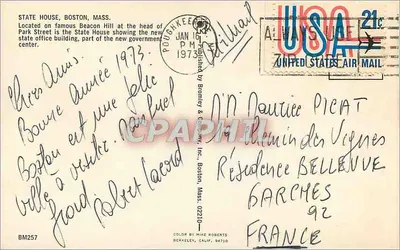 STATE HOUSE, BOSTON, MASS.
Located on famous Beacon Hill at the head of
Park Street is the State House showing the new
state office building, part of the new government
center.
POUGHKEEPSIE
JAN 10
PM
1973
ALWAYS USE
USA 21c
UNITED STATES AIR MAIL
Chers Amis.
Bonne année 1973.
Boston est une jolie
ville à visiter. Mais quel
froid
Robert Cacord
Published by Bromley & Company, Inc., Boston, Mass. 02210
CPARAMA
Mr Maurice PICAT
Chemin des Vignes
Résidence BELLEVUE
GARCHES
92
FRANCE
BM257
COLOR BY MIKE ROBERTS
BERKELEY, CALIF. 94710